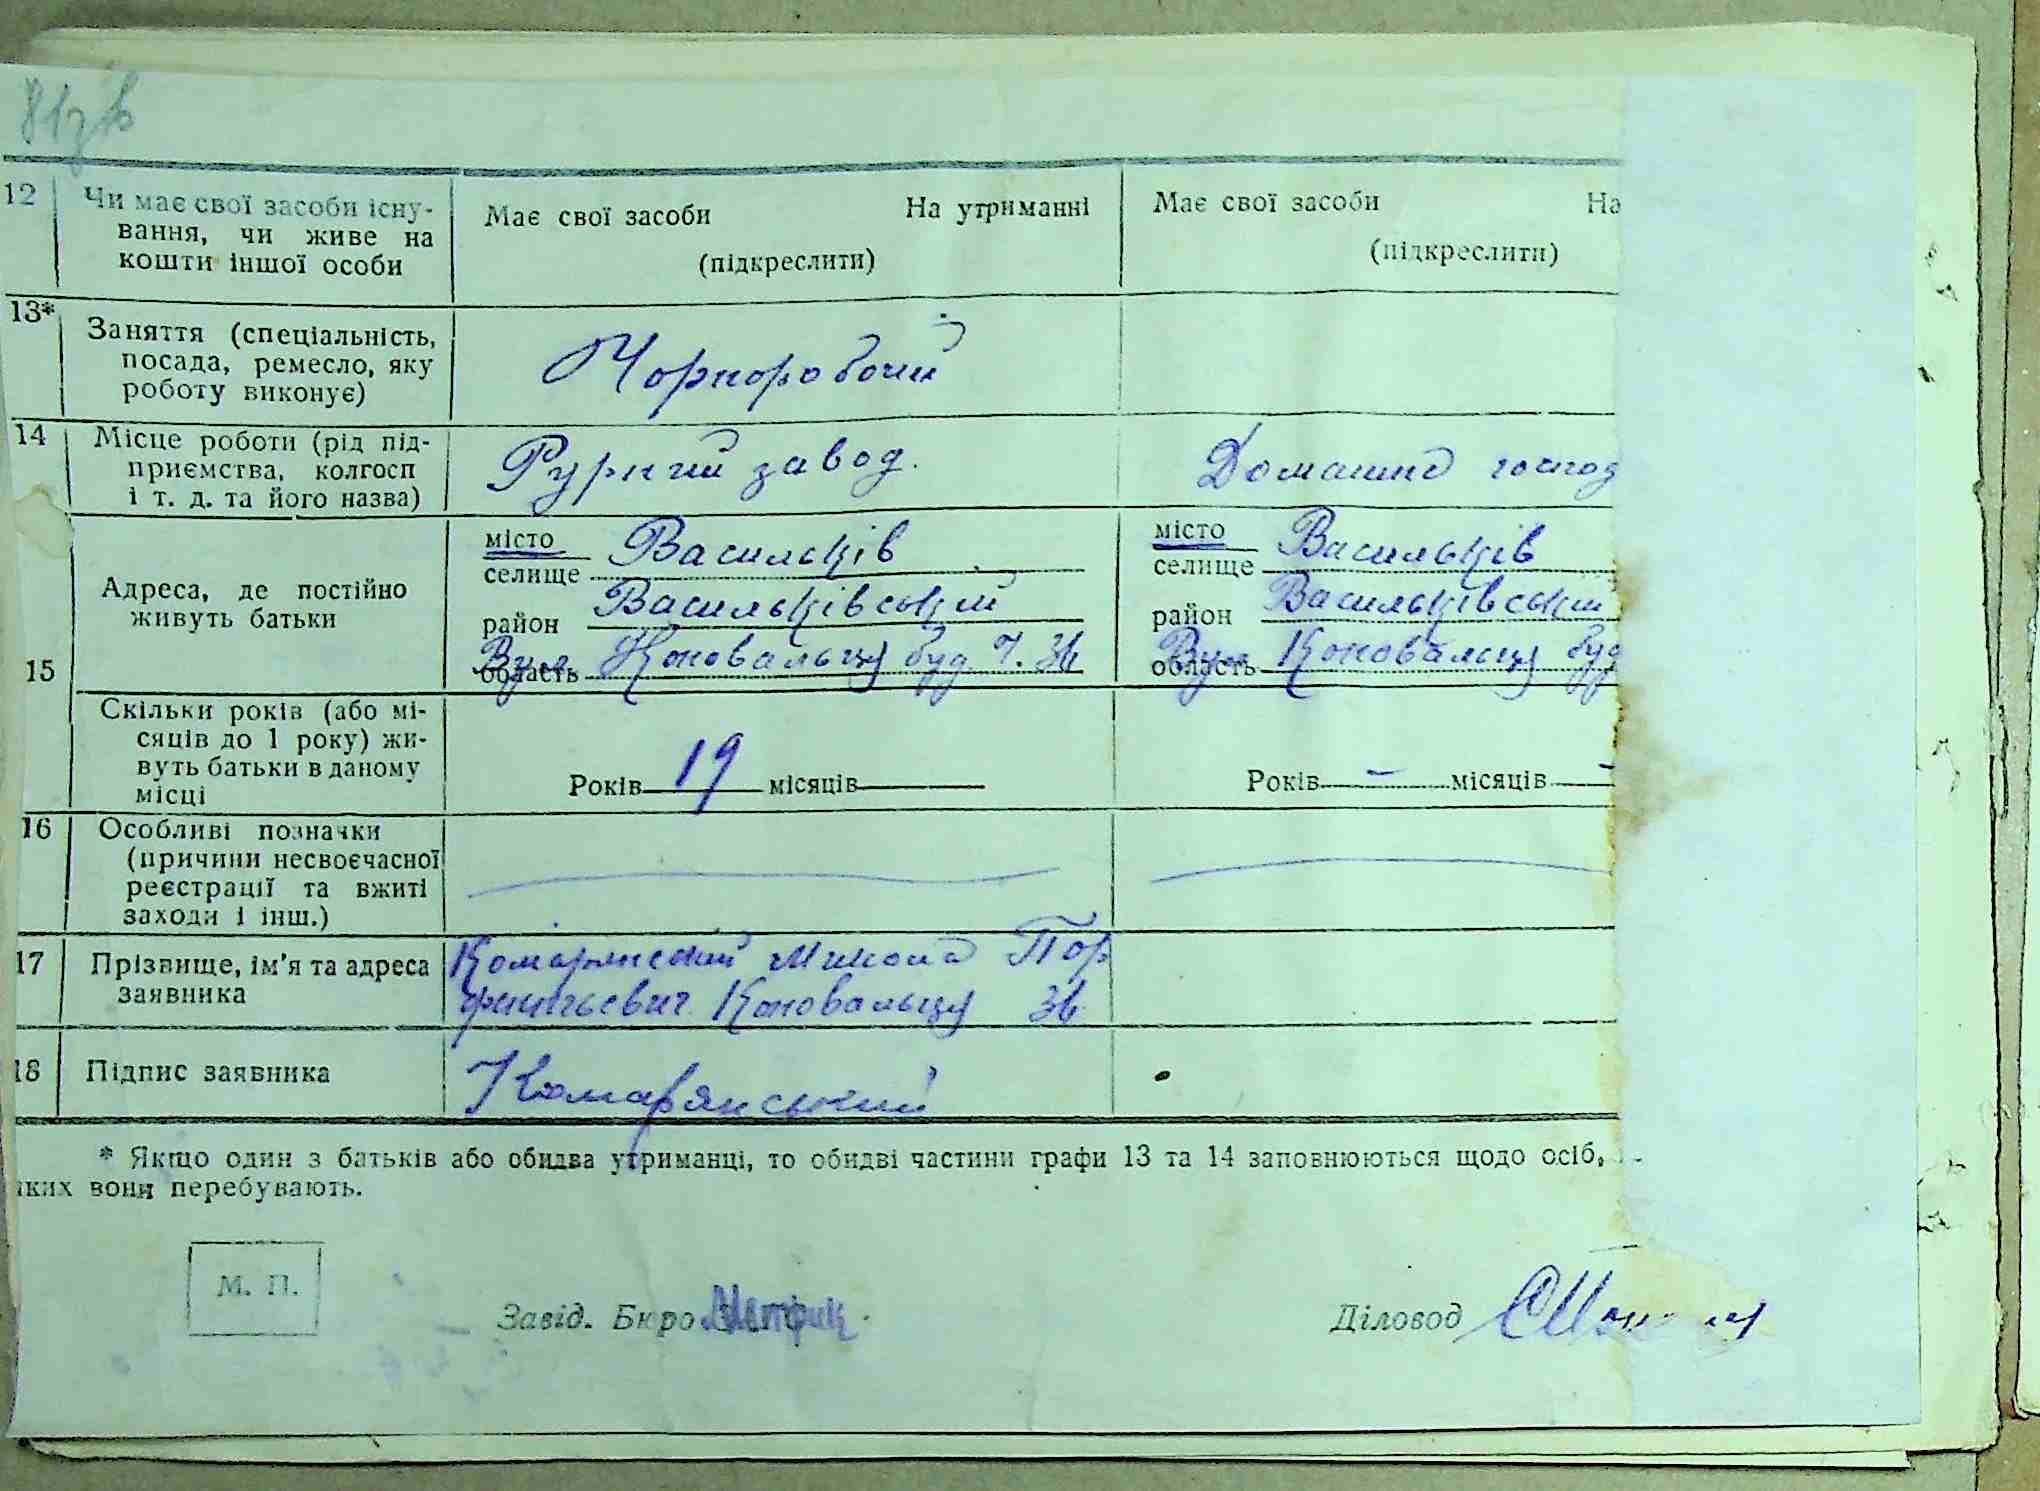 81зв
12 Чи має свої засоби існу- Має свої засоби На утриманні Має свої засоби На
вання, чи живе на
кошти іншої особи (підкреслити) (підкреслити)
13* Заняття (спеціальність,
посада, ремесло, яку Чорноробочий
роботу виконує)
14 Місце роботи (рід під-
приємства, колгосп завод. Домашнє господ
і т. д. та його назва)
15 Адреса, де постійно
живуть батьки
місто Васильків місто Васильків
селище селище
район Васильківський район Васильківський
область Вул. Коновальця буд Ч. 36 область Вул Коновальця буд
Скільки років (або мі-
сяців до 1 року) жи-
вуть батьки в даному
місці
Років 19 місяців Років - місяців -
16 Особливі позначки
(причини несвоєчасної
реєстрації та вжиті
заходи і інш.)
17 Прізвище, ім'я та адреса Комарянський Микола Пор
заявника фирьевич Коновальця 36
18 Підпис заявника Комарянський
* Якщо один з батьків або обидва утриманці, то обидві частини графи 13 та 14 заповнюються щодо осіб,
яких вони перебувають.
М. П.
Завід. Бюро Метрик. Діловод